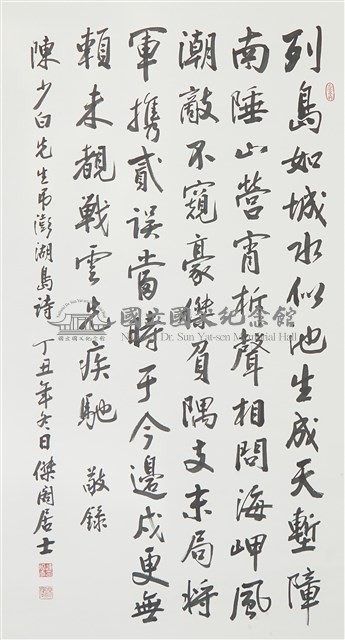 列島如城水似池生成天塹障
南陲山營宵柝聲相問海岬風
潮敵不窺豪傑負隅支末局將
軍攜貳誤當時于今邊戍更無
賴未覩戰雲先疾馳 敬錄
陳少白先生弔澎湖島詩 丁丑年冬日 傑閣居士
國立國父紀念館
National Dr. Sun Yat-sen Memorial Hall